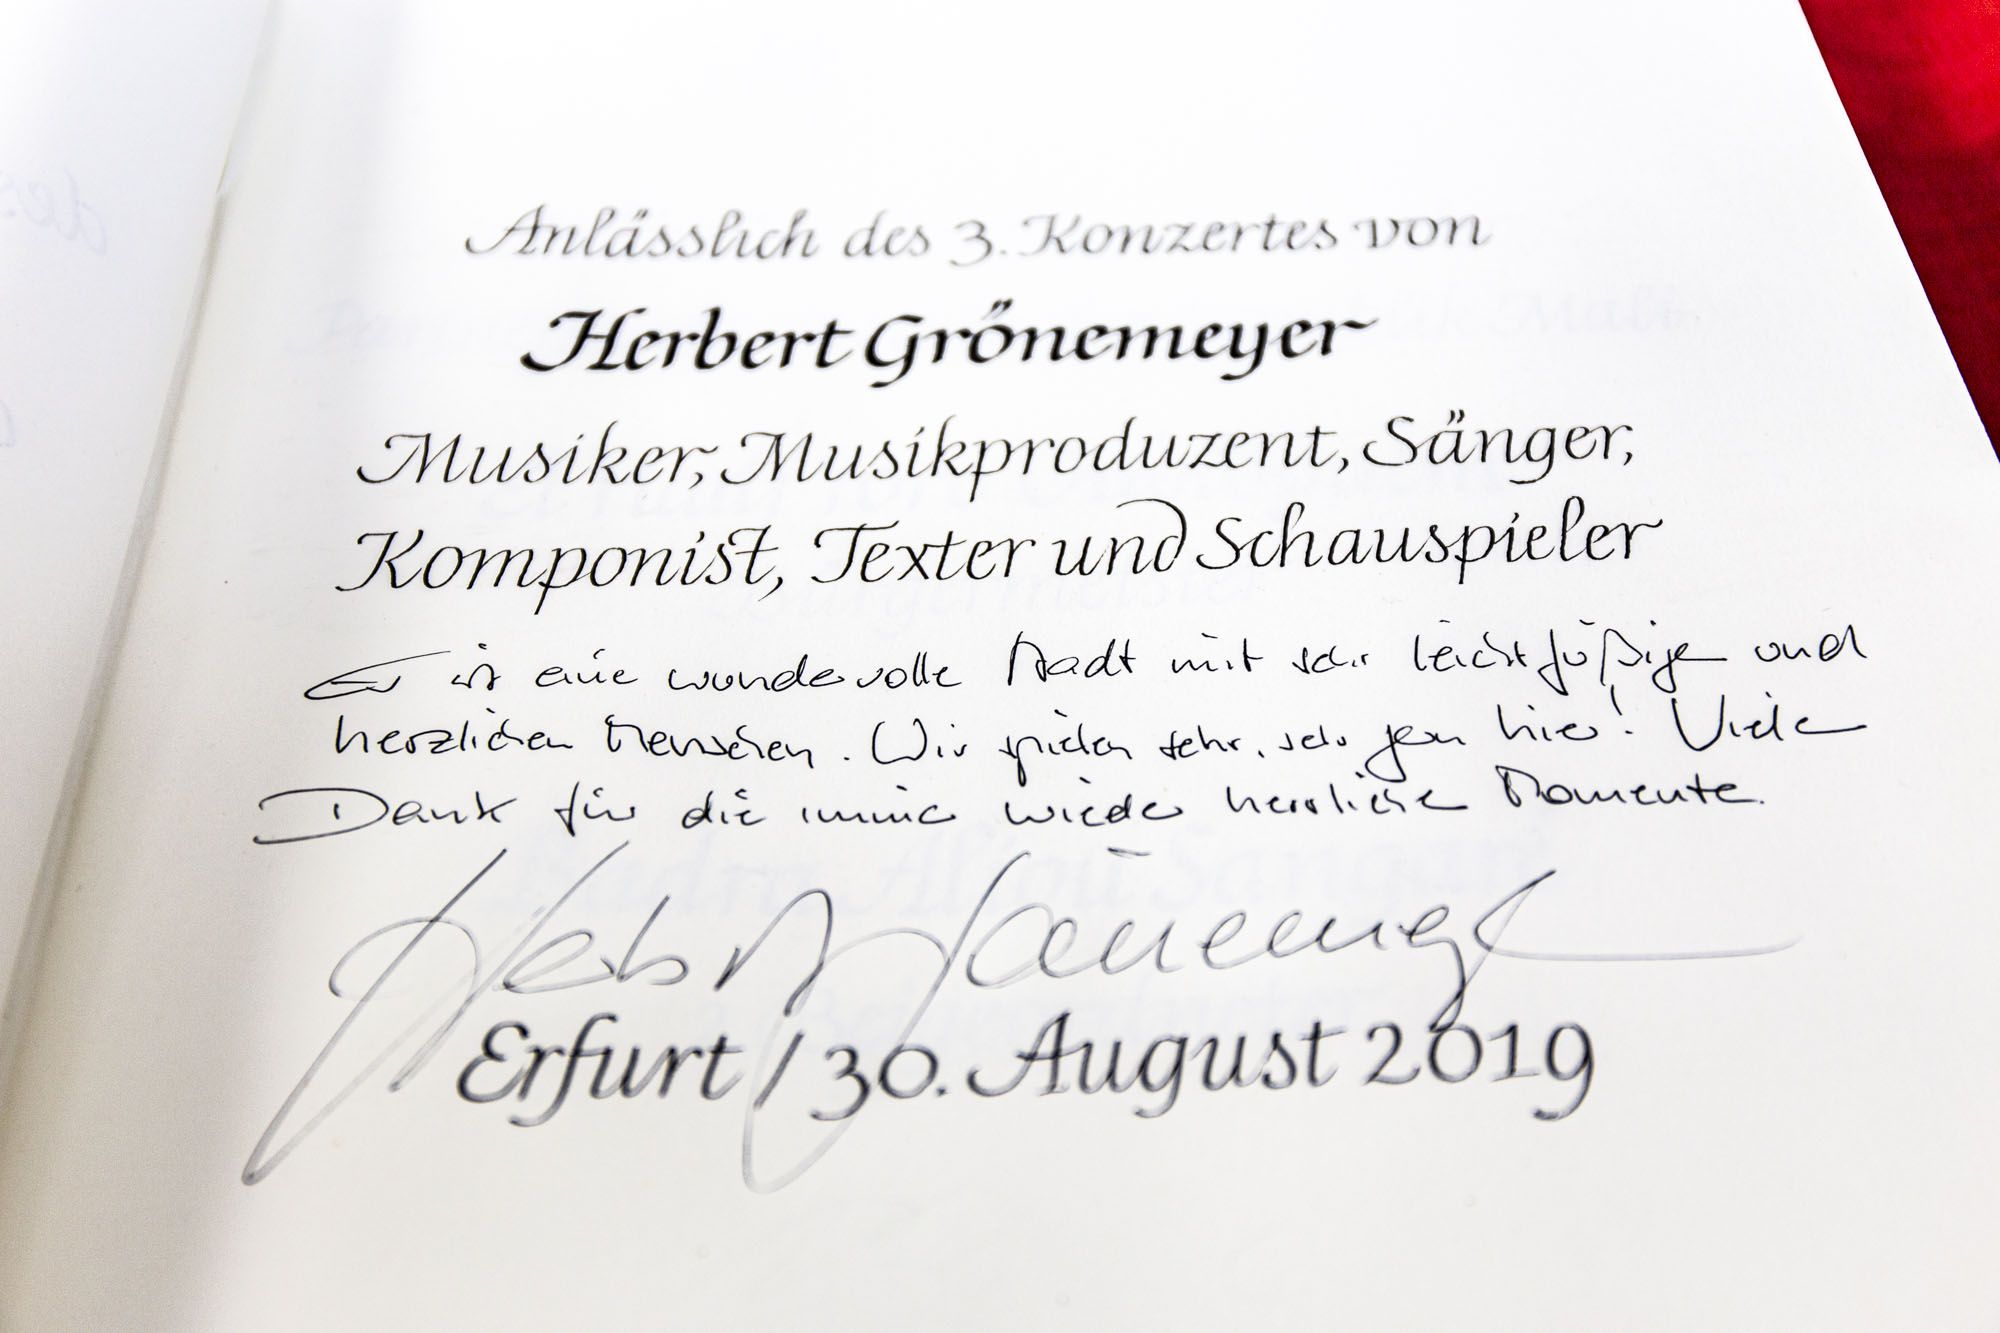 Anlässlich des 3. Konzertes von
Herbert Grönemeyer
Musiker, Musikproduzent, Sänger,
Komponist, Texter und Schauspieler
Es ist eine wundervolle Stadt mit sehr leichtfüßigen und
herzlichen Menschen. Wir spielen sehr, sehr gern hier! Viele
Dank für die immer wieder herrliche Momente.
Herbert Grönemeyer
Erfurt / 30. August 2019